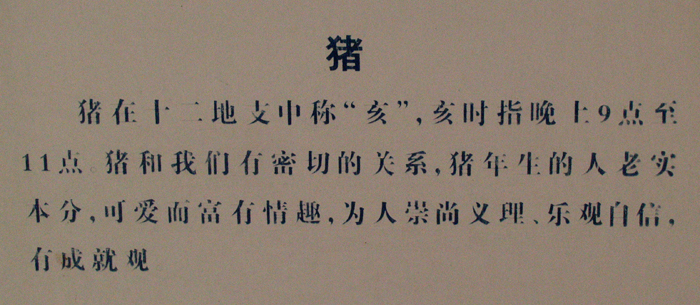 猪
猪在十二地支中称“亥”,亥时指晚上9点至
11点。猪和我们有密切的关系,猪年生的人老实
本分,可爱而富有情趣,为人崇尚义理、乐观自信,
有成就观